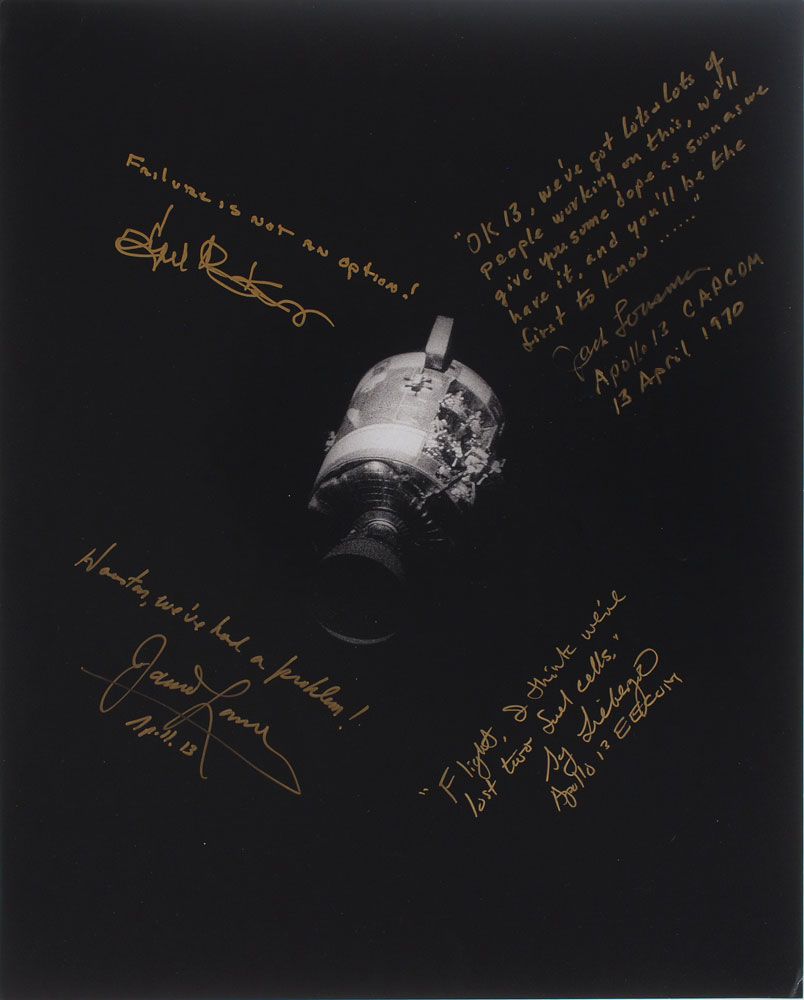 Failure is not an option!
"OK 13, we've got lots & lots of
people working on this, we'll
give you some dope as soon as we
have it, and you'll be the
first to know ......."
Jack Lousma
Apollo 13 CAPCOM
13 April 1970
Houston, we've had a problem!
James Lovell
Ap. 11. 13
"Flight, I think we've
lost two fuel cells."
Sy Liebergot
Apollo 13 EECOM